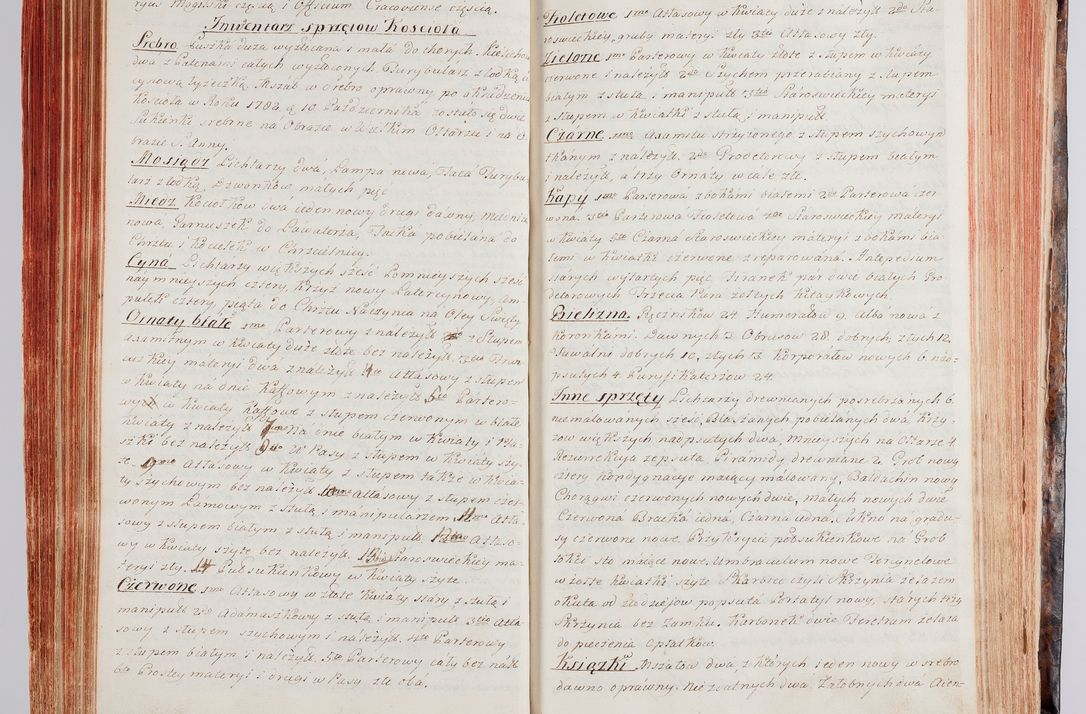 rgus Mogilski częścią i Officium Cracoviense częścią.
Inwentarz sprzętów Kościoła
Srebro Puszka duża wyzłacana i mała do chorych, Kielichów
dwa z Patenami całych wyzłoconych Turybularz z łódką i
cynową łyżeczką. Mszał w srebro oprawny po okradzeniu
Kościoła w Roku 1782 d 10 Października zostało się dwie
Sukienki srebrne na Obrazie w Wielkim Ołtarzu i na O-
brazie S. Anny.
Mosiądz Lichtarzy dwa, Lampa nowa, Tacá Turybu-
larz z łódką, dzwonków małych pięć
Miedz Kociołków dwá ieden nowy drugi dawny, miednica
nowa, Garnuszek do Lawaterza, Tacka pobielana do
Chrztu i kociełek w Chrzcielnicy.
Cyná Lichtarzy większych sześć Pomnieyszych sześć
naymnieyszych cztery, Krzyż nowy Latercynowy, am-
pułek cztery, piąta do Chrztu Naczynia na Oley Święty
Ornaty białe 1mo Parterowy z należyt z Słupem
axamitnym w kwiaty duże złote bez należyt. 3tio Fran-
cuzkiey materyi dwa z należyt 4to Atłasowy z słupem
w kwiaty na dnie kaffowym z należyt 5to Partero-
wy w kwiaty kaffowe z słupem czerwonym w białe
kwiaty z należyt 7mo Na dnie białym w kwiaty i Pta-
szki bez należyt 8vo w Pasy z słupem w kwiaty szy-
te. 9no Atłasowy w kwiaty z słupem także w kwia-
ty Szychowym bez należyt 10mo Atłasowy z słupem czer-
wonym Lamowym z stułą i manipularzem, 11mo Atła-
sowy z słupem białym z stułą i manipułł 12mo Atłaso-
wy w kwiaty szyte bez należyt. 13tio Staroswieckiey ma-
teryi zły. 14 Pułsukienkowy w kwiaty szyte
Czerwone 1mo Atłasowy w złote kwiaty stary z stułą i
manipułł 2do Adamaszkowy z stułą i manipułł 3tio Atła-
sowy z słupem szychowym i należyt. 4to Parterowy
z słupem białym i należyt. 5to Parterowy cały bez należ
6to Prostey materyi i drugi w Pasy złe obá.
Fioletowe 1mo Atłasowy w kwiaty duże z należyt 2do Sta-
roswieckiey gruby materyi zły 3tio Atłasowy zły.
Zielone 1mo Parterowy w kwiaty złote z słupem w kwiaty
czerwone i należyt 2do Szychem przerabiany z słupem
białym z stułą i manipułł 3tio Staroswieckiey materyi
z słupem w kwiatki z stułą i manipułł.
Czarne 1mo Axamitu strzyżonego z słupem szychowym
tkanym z należyt. 2do Prodetorowy z słupem białym
i należyt, a trzy Ornaty wcale złe.
Kapy 1mo Parterowa z bokami białemi 2do Parterowa czer-
wona. 3tio Parterowa Fioletowa 4to Staroswieckiey materyi
w kwiaty 5to Czarna Staroswieckiey materyi z bokami bia-
łemi w kwiatki czerwone zreparowana. Antepedium
starych wytartych pięć Firanek pár dwie białych Gro
detorowych Trzecia Para żółtych kitaykowych
Bielizna. Ręczników 24. Humerałów 9. Alba nowa z
koronkami. Dawnych 3 Obrusow 28. dobrych, złych 12.
Tuwalni dobrych 10, złych 3. Korporałow nowych 6. nad-
psutych 4. Puryfikaterzow 24.
Inne sprzęty Lichtarzy drewnianych posrebrzanych 6.
niemalowanych sześć, Blaszanych pobielanych dwá, Krzy-
zow większych nadpsutych dwa, mnieyszych na Ołtarze 4.
Rezurekcya zepsuta, Piramidy drewniane 2. Grob nowy
cztery kondygnacye maiący malowany, Baldachin nowy
Chorągwi czerwonych nowych dwie, małych nowych dwie
Czerwona Bracka iedna, Czarna iedna, Sukno na gradu-
sy czerwone nowe. Przykrycie półsukienkowe na Grob
łokci sto maiące nowe. Umbraculum nowe Tercynelowe
w żółte kwiatki szyte Skarbiec czyli Skrzynia żelazem
okuta od złodzieiow popsuta Portatył nowy, starych trzy
Skrzynia bez zamku. Karbonek dwie Feretrum żelaza
do pieczenia Opłatków.
Książki Mszałow dwa, z których ieden nowy w srebro
dawno oprawny. Nieszatnych dwa. Żałobnych dwa Aien-